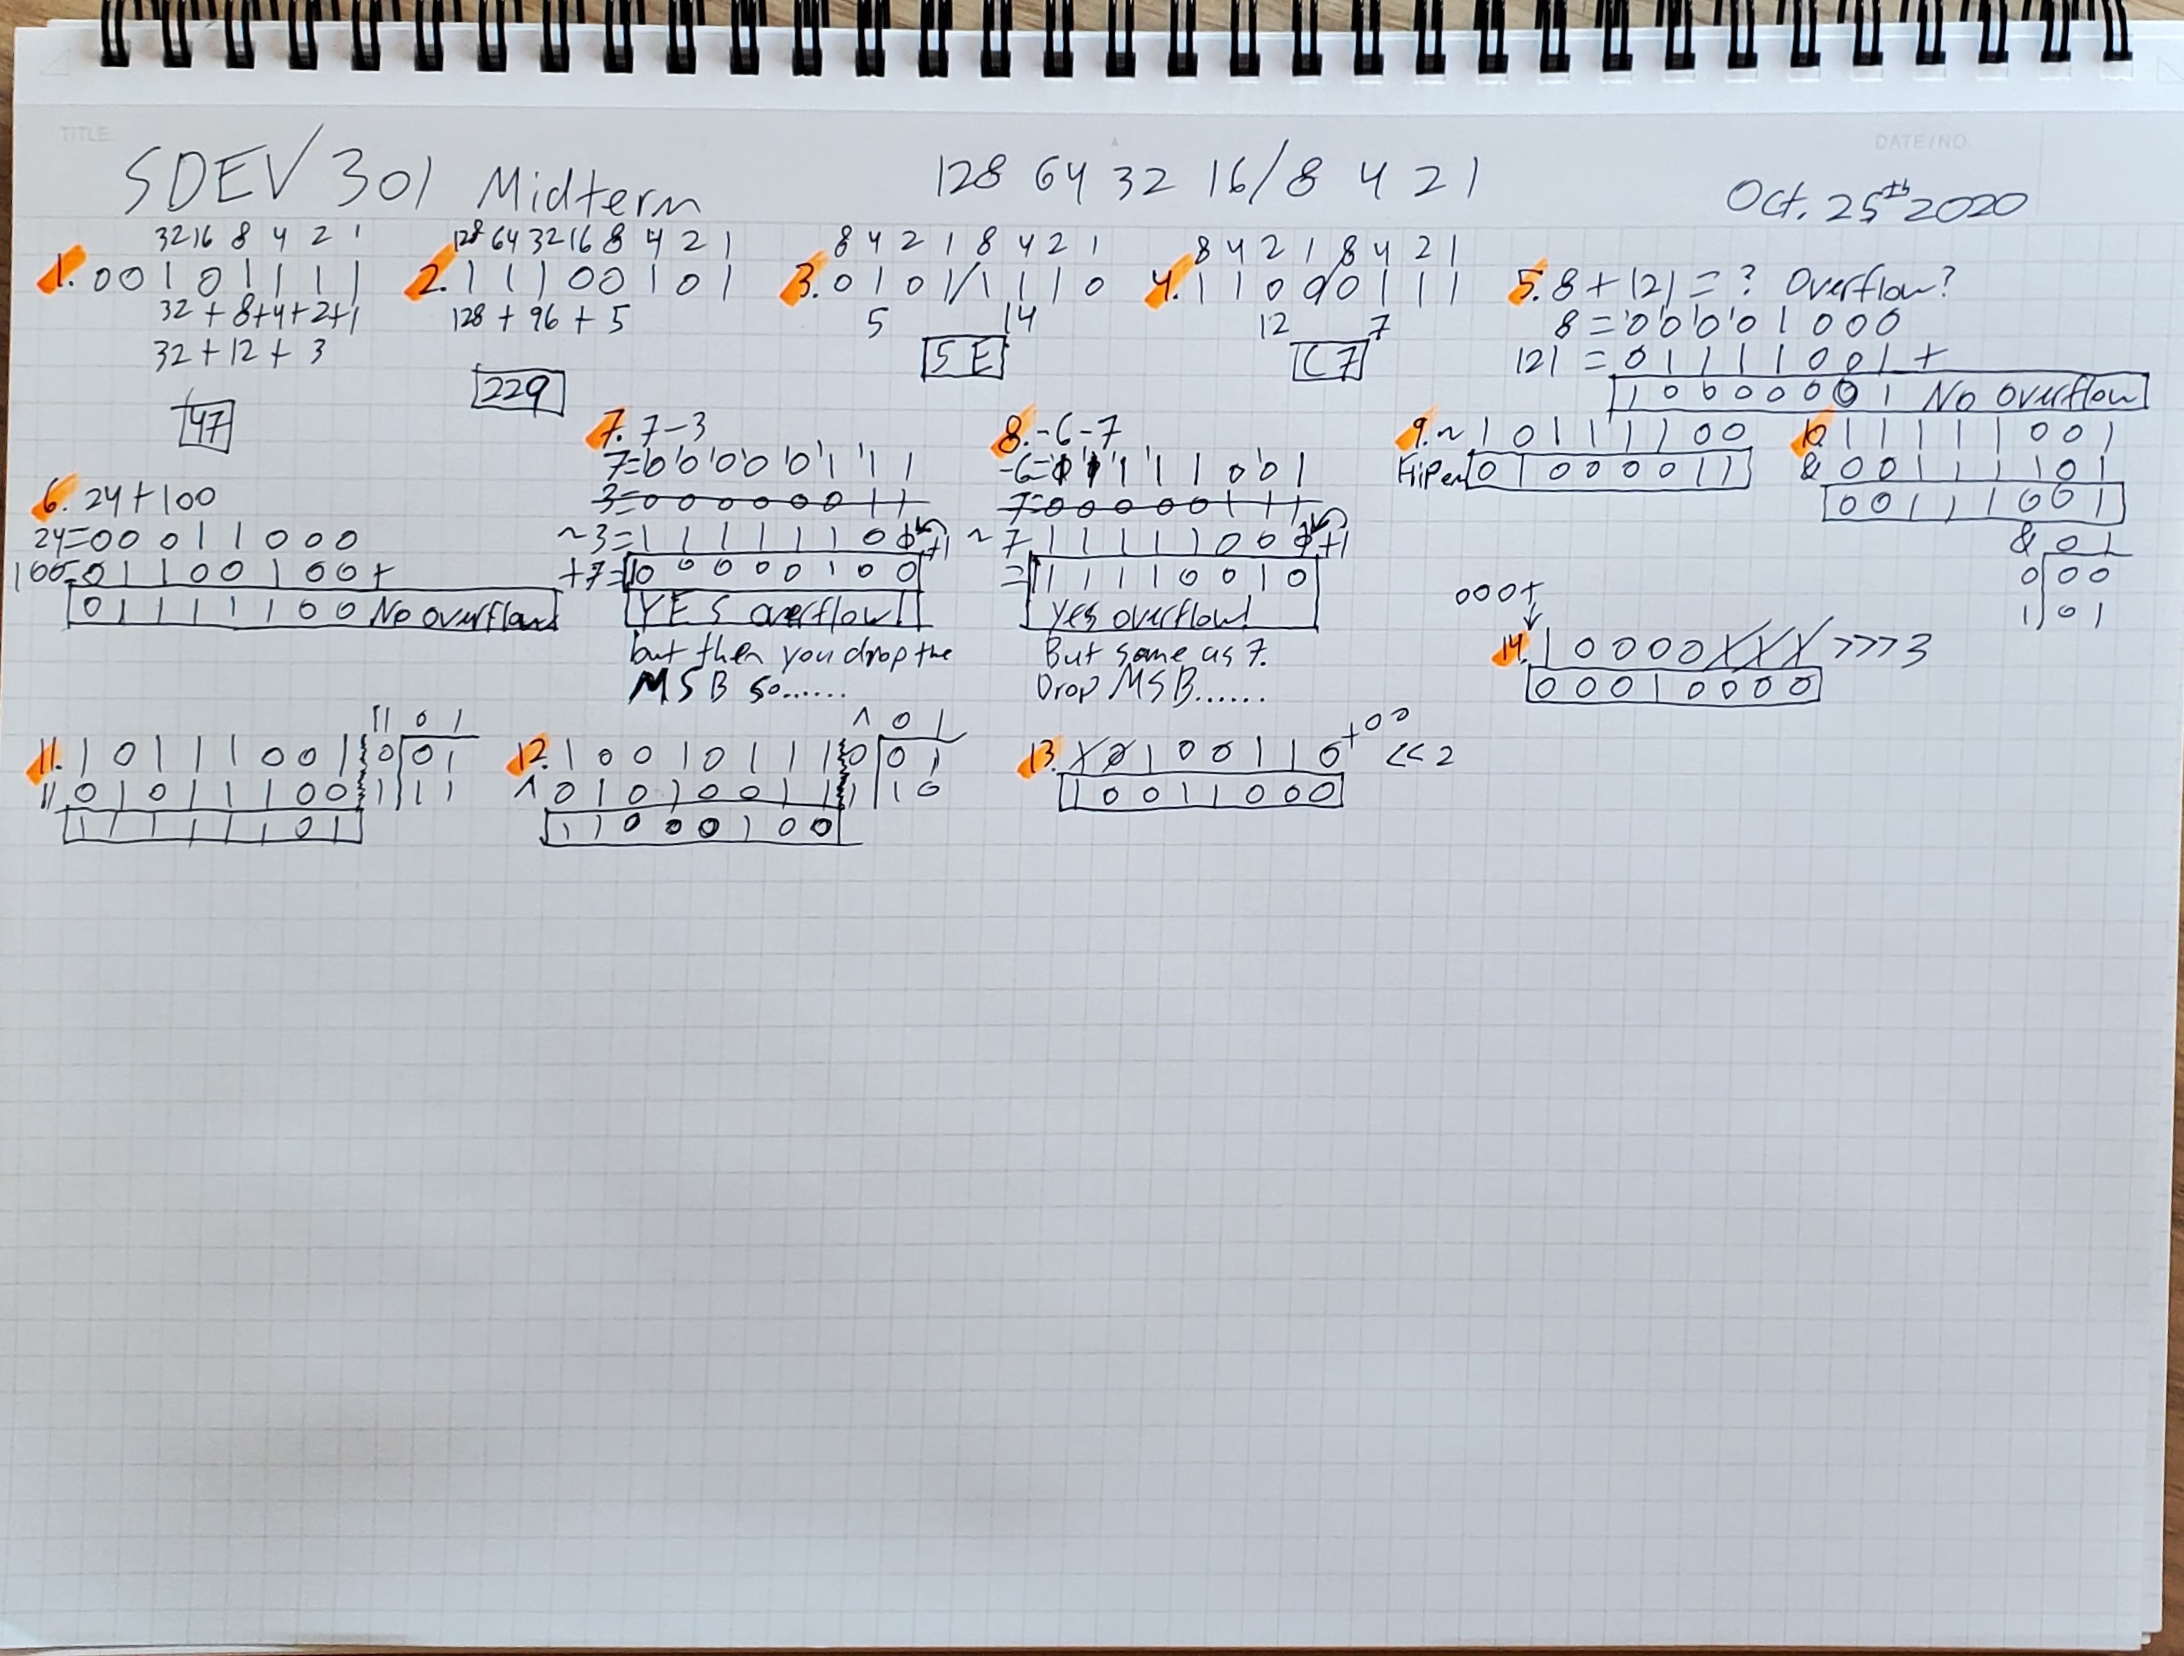 TITLE
DATE/NO.
SDEV 301 Midterm
128 64 32 16/8 4 2 1
Oct. 25th 2020
32 16 8 4 2 1
1. 0 0 1 0 1 1 1 1
32 + 8+4+2+1
32 + 12 + 3
47
128 64 32 16 8 4 2 1
2. 1 1 1 0 0 1 0 1
128 + 96 + 5
229
8 4 2 1 8 4 2 1
3. 0 1 0 1/1 1 1 0
5 14
5 E
8 4 2 1 8 4 2 1
4. 1 1 0 0/0 1 1 1
12 7
C 7
5. 8 + 121 = ? Overflow?
8 = 0 0 0 0 1 0 0 0
121 = 0 1 1 1 1 0 0 1 +
1 0 0 0 0 0 0 1 No overflow
6. 24 + 100
24= 0 0 0 1 1 0 0 0
100= 0 1 1 0 0 1 0 0 +
0 1 1 1 1 1 0 0 No overflow
7. 7-3
7= 0 0 0 0 0 1 1 1
3= 0 0 0 0 0 0 1 1
~3= 1 1 1 1 1 1 0 +1
+7= 1 0 0 0 0 0 1 0 0
YES overflow!
but then you drop the
MSB so......
8. -6-7
-6= 1 1 1 1 0 0 1
7= 0 0 0 0 0 1 1 1
~7 1 1 1 1 1 0 0 +1
= 1 1 1 1 0 0 1 0
yes overflow!
But same as 7.
Drop MSB......
9. ~ 1 0 1 1 1 1 0 0
0 1 0 0 0 0 1 1
10. 1 1 1 1 1 0 0 1
& 0 0 1 1 1 1 0 1
0 0 1 1 1 0 0 1
& 0 1
0 0 0
1 0 1
11. 1 0 1 1 1 0 0 1
|| 0 1 0 1 1 1 0 0
1 1 1 1 1 1 0 1
|| 0 1
0 0 1
1 1 1
12. 1 0 0 1 0 1 1 1
^ 0 1 0 1 0 0 1 1
1 1 0 0 0 1 0 0
^ 0 1
0 0 1
1 1 0
13. X 0 1 0 0 1 1 0 +00 << 2
1 0 0 1 1 0 0 0
000+
14. 1 0 0 0 0 X X X >>> 3
0 0 0 1 0 0 0 0